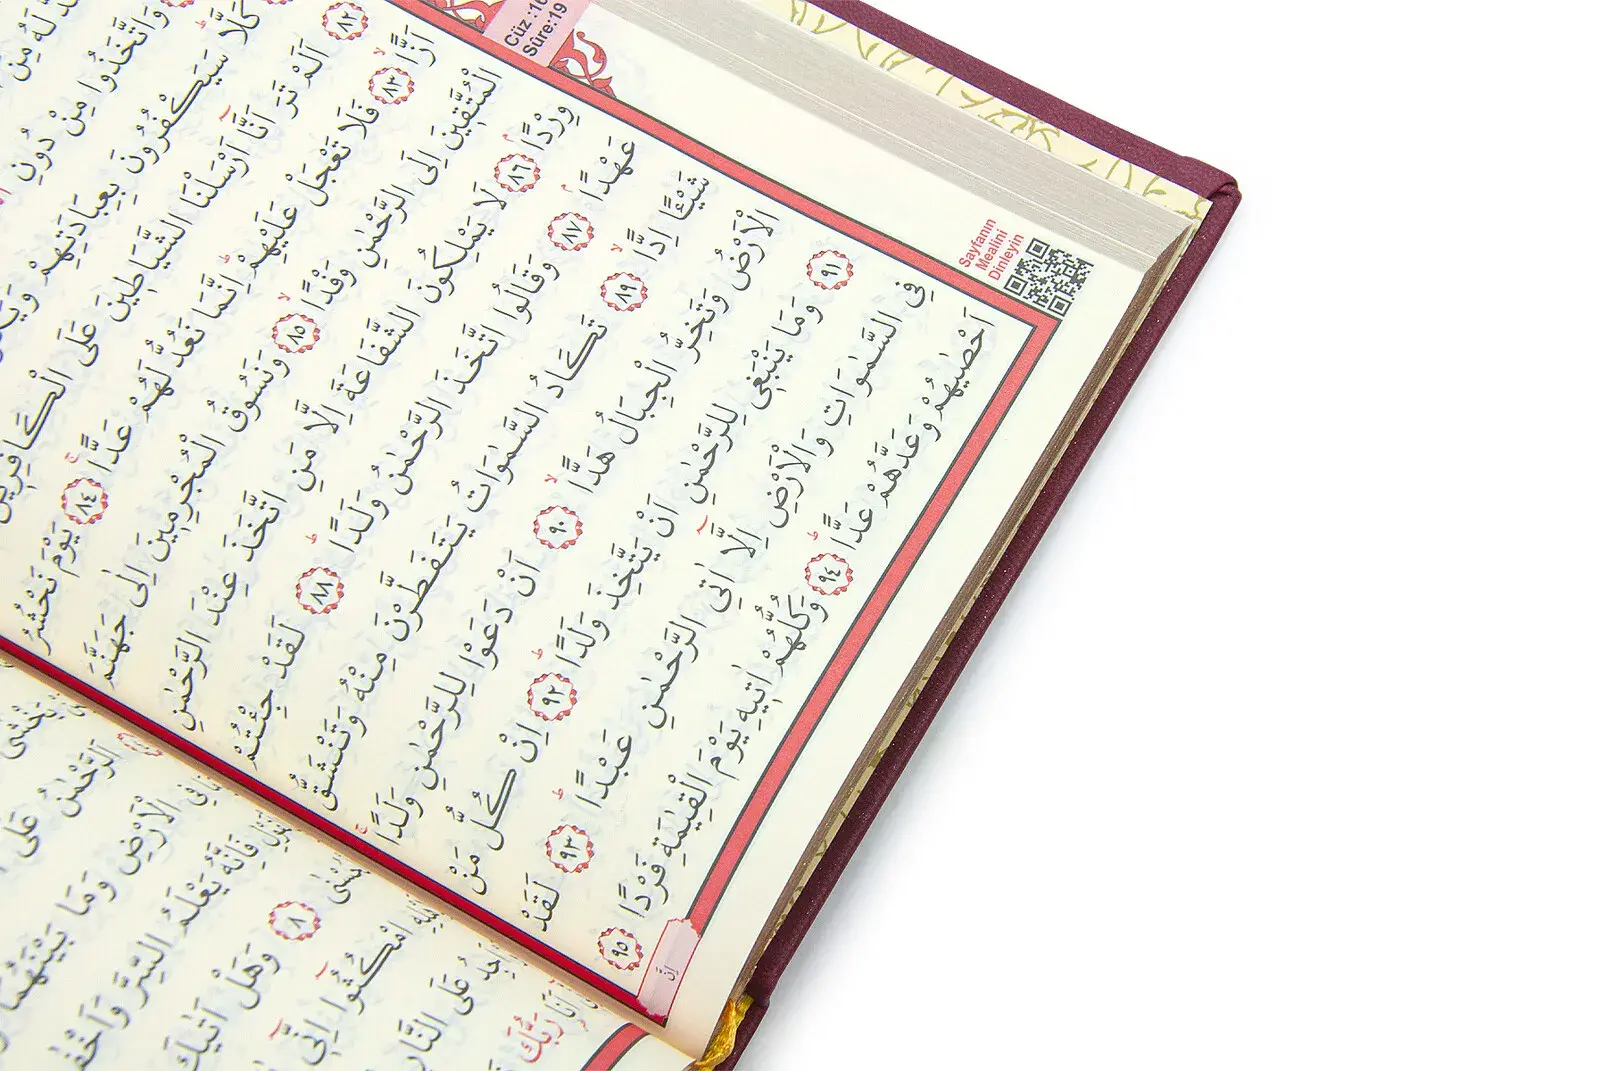 Cüz :16
Sûre:19
لَهُ مِنَ
وَاتَّخَذُوا مِنْ دُونِ
كَلَّا سَيَكْفُرُونَ بِعِبَادَتِهِمْ
٨٢ اَلَمْ تَرَ اَنَّٓا اَرْسَلْنَا الشَّيَاطٖينَ عَلَى الْكَافِرٖينَ
اَزًّا ٨٣ فَلَا تَعْجَلْ عَلَيْهِمْ اِنَّمَا نَعُدُّ لَهُمْ عَدًّا ٨٤ يَوْمَ نَحْشُرُ
الْمُتَّقٖينَ اِلَى الرَّحْمٰنِ وَفْدًا ٨٥ وَنَسُوقُ الْمُجْرِمٖينَ اِلٰى جَهَنَّمَ
وِرْدًا ٨٦ لَا يَمْلِكُونَ الشَّفَاعَةَ اِلَّا مَنِ اتَّخَذَ عِنْدَ الرَّحْمٰنِ
عَهْدًا ٨٧ وَقَالُوا اتَّخَذَ الرَّحْمٰنُ وَلَدًا ٨٨ لَقَدْ جِئْتُمْ
شَيْـًٔا اِدًّا ٨٩ تَكَادُ السَّمٰوَاتُ يَتَفَطَّرْنَ مِنْهُ وَتَنْشَقُّ
الْاَرْضُ وَتَخِرُّ الْجِبَالُ هَدًّا ٩٠ اَنْ دَعَوْا لِلرَّحْمٰنِ وَلَدًا
٩١ وَمَا يَنْبَغٖي لِلرَّحْمٰنِ اَنْ يَتَّخِذَ وَلَدًا ٩٢ اِنْ كُلُّ مَنْ
فِي السَّمٰوَاتِ وَالْاَرْضِ اِلَّٓا اٰتِي الرَّحْمٰنِ عَبْدًا ٩٣ لَقَدْ
اَحْصٰيهُمْ وَعَدَّهُمْ عَدًّا ٩٤ وَكُلُّهُمْ اٰتٖيهِ يَوْمَ الْقِيٰمَةِ فَرْدًا ٩٥
اِنَّ
Sayfanın
Mealini
Dinleyin
يَخْشٰى
اَلرَّحْمٰنُ عَلَى
فِي الْاَرْضِ وَمَا بَيْنَهُمَا
فَاِنَّهُ يَعْلَمُ السِّرَّ وَاَخْفٰى
٨ وَهَلْ اَتٰيكَ
امْكُثُٓوا اِنّٖٓي
عَلَى النَّارِ
اَنَا رَبُّكَ